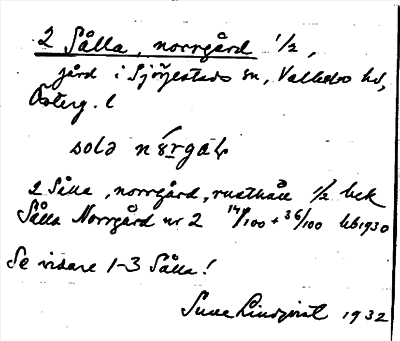 2 Sålla, norrgård 1/2,
gård i Sjögestads sn, Valkebo hd,
Österg. l
solə
2 Sålla, norrgård, rusthåll 1/2 
Sålla Norrgård nr 2 14/100 + 36/100 1930
Se vidare 1-3 Sålla!
Sune Lindqvist 1932